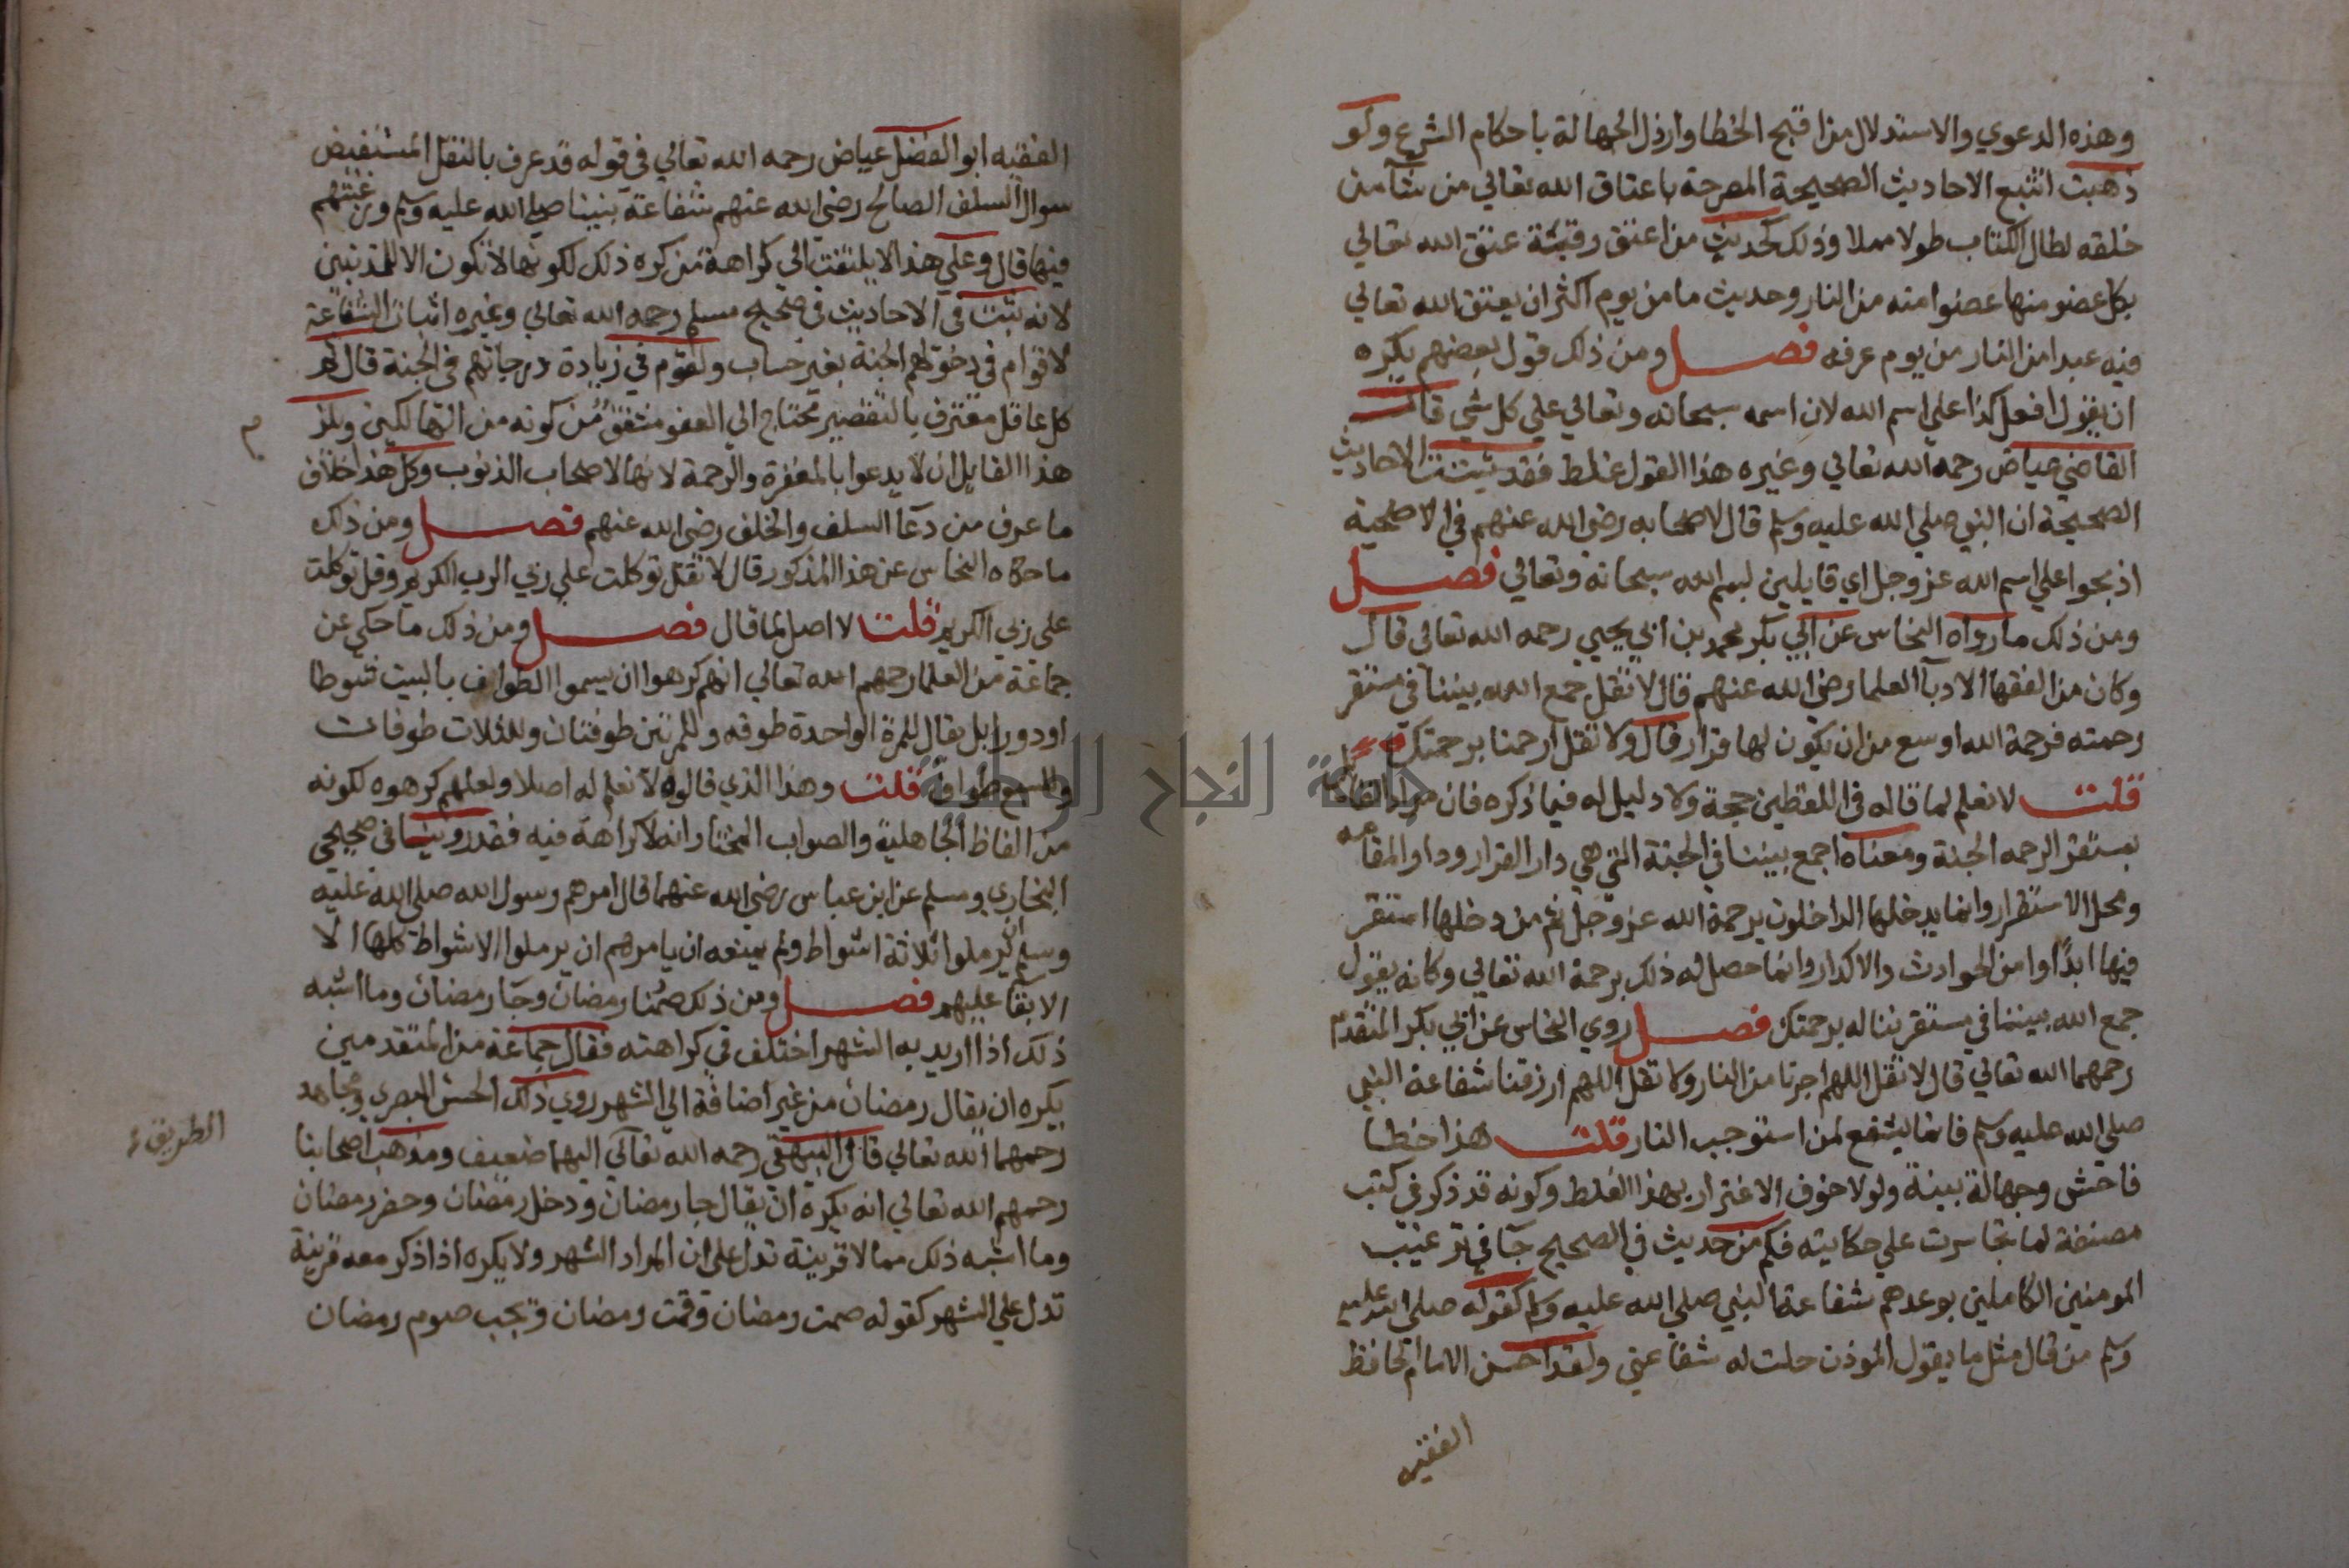 وهذه الدعوي والاستدلال من اقبح الخطا وارذل الجهالة باحكام الشرع ولو
ذهبت اتتبع الاحاديث الصحيحة المصرحة باعتاق الله تعالي من شآ من
خلقه لطال الكتاب طولا مملا وذلك كحديث من اعتق رقبة عتق الله تعالي
بكل عضو منها عضوا منه من النار وحديث ما من يوم اكثر ان يعتق الله تعالي
فيه عبدا من النار من يوم عرفه فصل ومن ذلك قول بعضهم يكره
ان يقول افعل كذا علي اسم الله لان اسمه سبحانه وتعالي علي كل شي قال
القاضي عياض رحمه الله تعالي وغيره هذا القول غلط فقد ثبتت الاحاديث
الصحيحة ان النبي صلي الله عليه وسلم قال لاصحابه رضي الله عنهم في الاضحية
اذبحوا علي اسم الله عز وجل اي قايلين لبسم الله سبحانه وتعالي فصل
ومن ذلك ما رواه النحاس عن ابي بكر محمد بن ابي يحيي رحمه الله تعالي قال
وكان من الفقها الادبآ العلما رضي الله عنهم قال لا تقل جمع الله بيننا في مستقر
رحمته فرحمة الله اوسع من ان يكون لها قرار قال ولا تقل ارحمنا برحمتك
قلت لا نعلم لما قاله في اللفظين حجة ولا دليل له فيما ذكره فان مراد القايل
بمستقر الرحمه الجنة ومعناه اجمع بيننا في الجنة التي هي دار القرار ودار المقامه
ومحل الاستقرار وانما يدخلها الداخلون برحمة الله عز وجل ثم من دخلها استقر
فيها ابدًا وامن الحوادث والاكدار وانما حصل له ذلك برحمة الله تعالي وكانه يقول
جمع الله بيننا في مستقر نناله برحمتك فصل روي النحاس عن ابي بكر المتقدم
رحمهما الله تعالي قال لا تقل اللهم اجرنا من النار ولا تقل اللهم ارزقنا شفاعة النبي
صلي الله عليه وسلم فانما يشفع لمن استوجب النار قلت هذا خطا
فاحش وجهالة بينة ولولا خوف الاغترار بهذا الغلط وكونه قد ذكر في كتب
مصنفة لما تجاسرت علي حكايته فكم من حديث في الصحيح جآ في ترغيب
المومنين الكاملين بوعدهم شفاعة النبي صلي الله عليه وسلم كقوله صلي الله عليه
وسلم من قال مثل ما يقول الموذن حلت له شفاعتي ولقد احسن الامام الحافظ
الفقيه
الفقيه ابو الفضل عياض رحمه الله تعالي في قوله قد عرف بالنقل المستفيض
سوال السلف الصالح رضي الله عنهم شفاعة نبينا صلي الله عليه وسلم ورغبتهم
فيها قال وعلي هذا لا يلتفت الي كراهة من كره ذلك لكونها لا تكون الا للمذنبين
لانه ثبت في الاحاديث في صحيح مسلم رحمه الله تعالي وغيره اثبات الشفاعة
لاقوام في دخولهم الجنة بغير حساب ولقوم في زيادة درجاتهم في الجنة قال ثم
كل عاقل معترف بالتقصير محتاج الي العفو مشفق من كونه من الهالكين ويلزم
هذا القايل ان لا يدعوا بالمغفرة والرحمة لانها لاصحاب الذنوب وكل هذا خلاف
ما عرف من دعآ السلف والخلف رضي الله عنهم فصل ومن ذلك
ما حكاه النحاس عن هذا المذكور قال لا تقل توكلت علي ربي الرب الكريم وقل توكلت
علي ربي الكريم قلت لا اصل لما قال فصل ومن ذلك ما حكي عن
جماعة من العلما رحمهم الله تعالي انهم كرهوا ان يسموا الطواف بالبيت شوطا
او دورا بل يقال للمرة الواحدة طوفه وللمرتين طوفتان وللثلاث طوفات
وللسبع طواف قلت وهذا الذي قالوه لا نعلم له اصلا ولعلهم كرهوه لكونه
من الفاظ الجاهلية والصواب المختار انه لا كراهة فيه فقد روينا في صحيحي
البخاري ومسلم عن ابن عباس رضي الله عنهما قال امرهم رسول الله صلي الله عليه
وسلم ان يرملوا ثلاثة اشواط ولم يمنعه ان يامرهم ان يرملوا الاشواط كلها الا
الابقآ عليهم فصل ومن ذلك صمنا رمضان وجآ رمضان وما اشبه
ذلك اذا اريد به الشهر اختلف في كراهته فقال جماعة من المتقدمين
يكره ان يقال رمضان من غير اضافة الي الشهر روي ذلك الحسن البصري ومجاهد
رحمهما الله تعالي قال البيهقي رحمه الله تعالي اليهما ضعيف ومذهب اصحابنا
الطريق
رحمهم الله تعالي انه يكره ان يقال جا رمضان ودخل رمضان وحضر رمضان
وما اشبه ذلك مما لا قرينة تدل علي ان المراد الشهر ولا يكره اذا ذكر معه قرينة
تدل علي الشهر كقوله صمت رمضان وقمت رمضان ويجب صوم رمضان
جامعة النجاح الوطنية